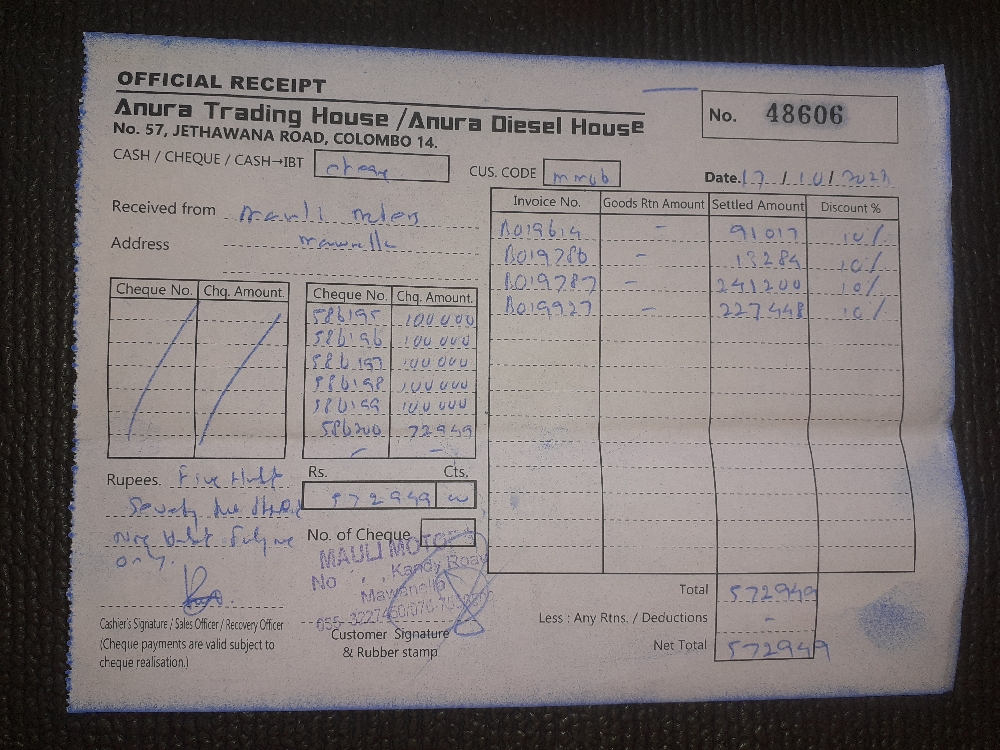 OFFICIAL RECEIPT
Anura Trading House / Anura Diesel House
No. 57, JETHAWANA ROAD, COLOMBO 14.
No. 48606
CASH / CHEQUE / CASH→IBT
CUS. CODE
Date. 17 / 10 /
Received from Mauli
Address
Cheque No. Chq. Amount.
Cheque No. Chq. Amount.
586195 100 000
586196 100 000
586197 100 000
586198 100 000
586199 100 000
586200 72949
Invoice No. Goods Rtn Amount Settled Amount Discount %
B019614 - 91017 10%
B019786 - 13284 10%
B019787 - 241200 10%
B019927 - 227448 10%
Rupees. Five
only.
Rs. Cts.
572949
No. of Cheque
MAULI MOTORS
No Kandy Road
Mawanella
Cashier's Signature / Sales Officer / Recovery Officer
(Cheque payments are valid subject to
cheque realisation.)
Customer Signature
& Rubber stamp
Total 572949
Less : Any Rtns. / Deductions -
Net Total 572949